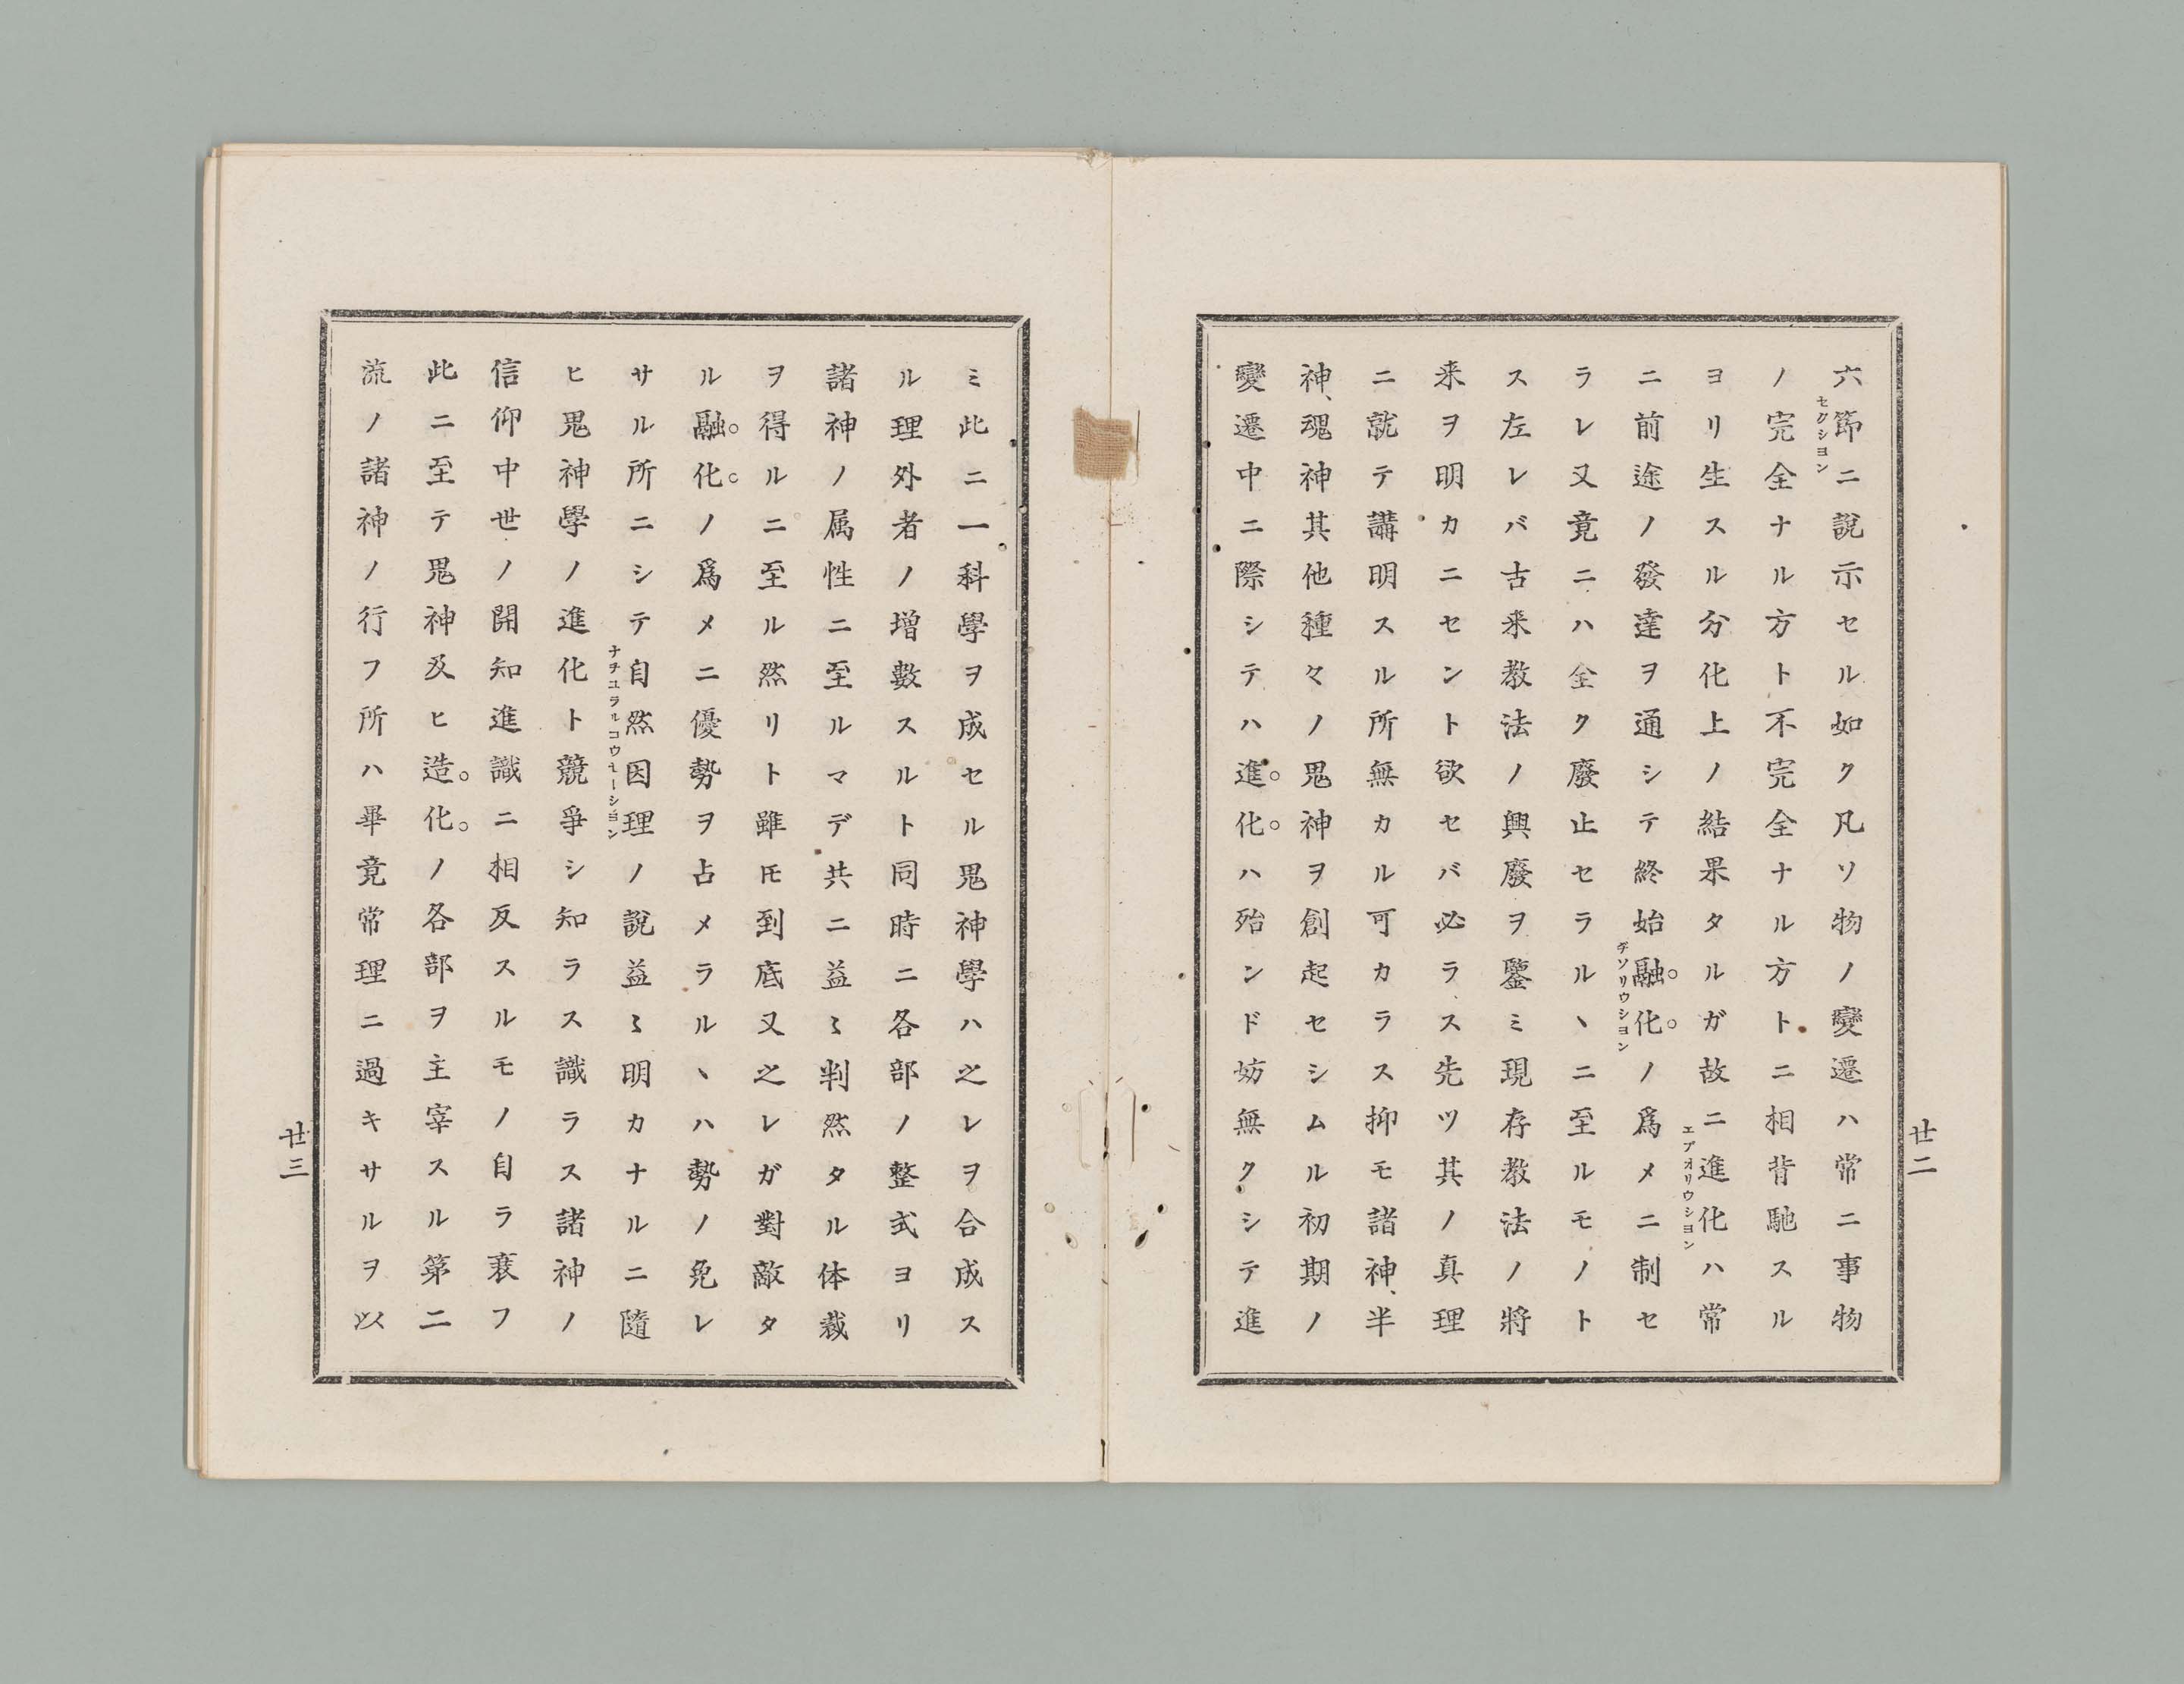 六節ニ說示セル如ク凡ソ物ノ變遷ハ常ニ事物
セクシヨン
ノ完全ナル方ト不完全ナル方トニ相背馳スル
ヨリ生スル分化上ノ結果タルガ故ニ進化ハ常
エブオリウシヨン
ニ前途ノ發達ヲ通シテ終始融化ノ爲メニ制セ
ヂソリウシヨン
ラレ又竟ニハ全ク廢止セラルヽニ至ルモノト
ス左レバ古来教法ノ興廢ヲ鑒ミ現存教法ノ將
来ヲ明カニセント欲セバ必ラス先ツ其ノ真理
ニ就テ講明スル所無カル可カラス抑モ諸神、半
神、魂神其他種々ノ鬼神ヲ創起セシムル初期ノ
變遷中ニ際シテハ進化ハ殆ンド妨無クシテ進
廿二
ミ此ニ一科學ヲ成セル鬼神學ハ之レヲ合成ス
ル理外者ノ增數スルト同時ニ各部ノ整式ヨリ
諸神ノ属性ニ至ルマデ共ニ益〻判然タル体裁
ヲ得ルニ至ル然リト雖𪜈到底又之レガ對敵タ
ル融化ノ爲メニ優勢ヲ占メラルヽハ勢ノ免レ
サル所ニシテ自然因理ノ說益〻明カナルニ隨
ナチユラルコウセーシヨン
ヒ鬼神學ノ進化ト競爭シ知ラス識ラス諸神ノ
信仰中世ノ開知進識ニ相反スルモノ自ラ衰フ
此ニ至テ鬼神及ヒ造化ノ各部ヲ主宰スル第二
流ノ諸神ノ行フ所ハ畢竟常理ニ過キサルヲ以
廿三